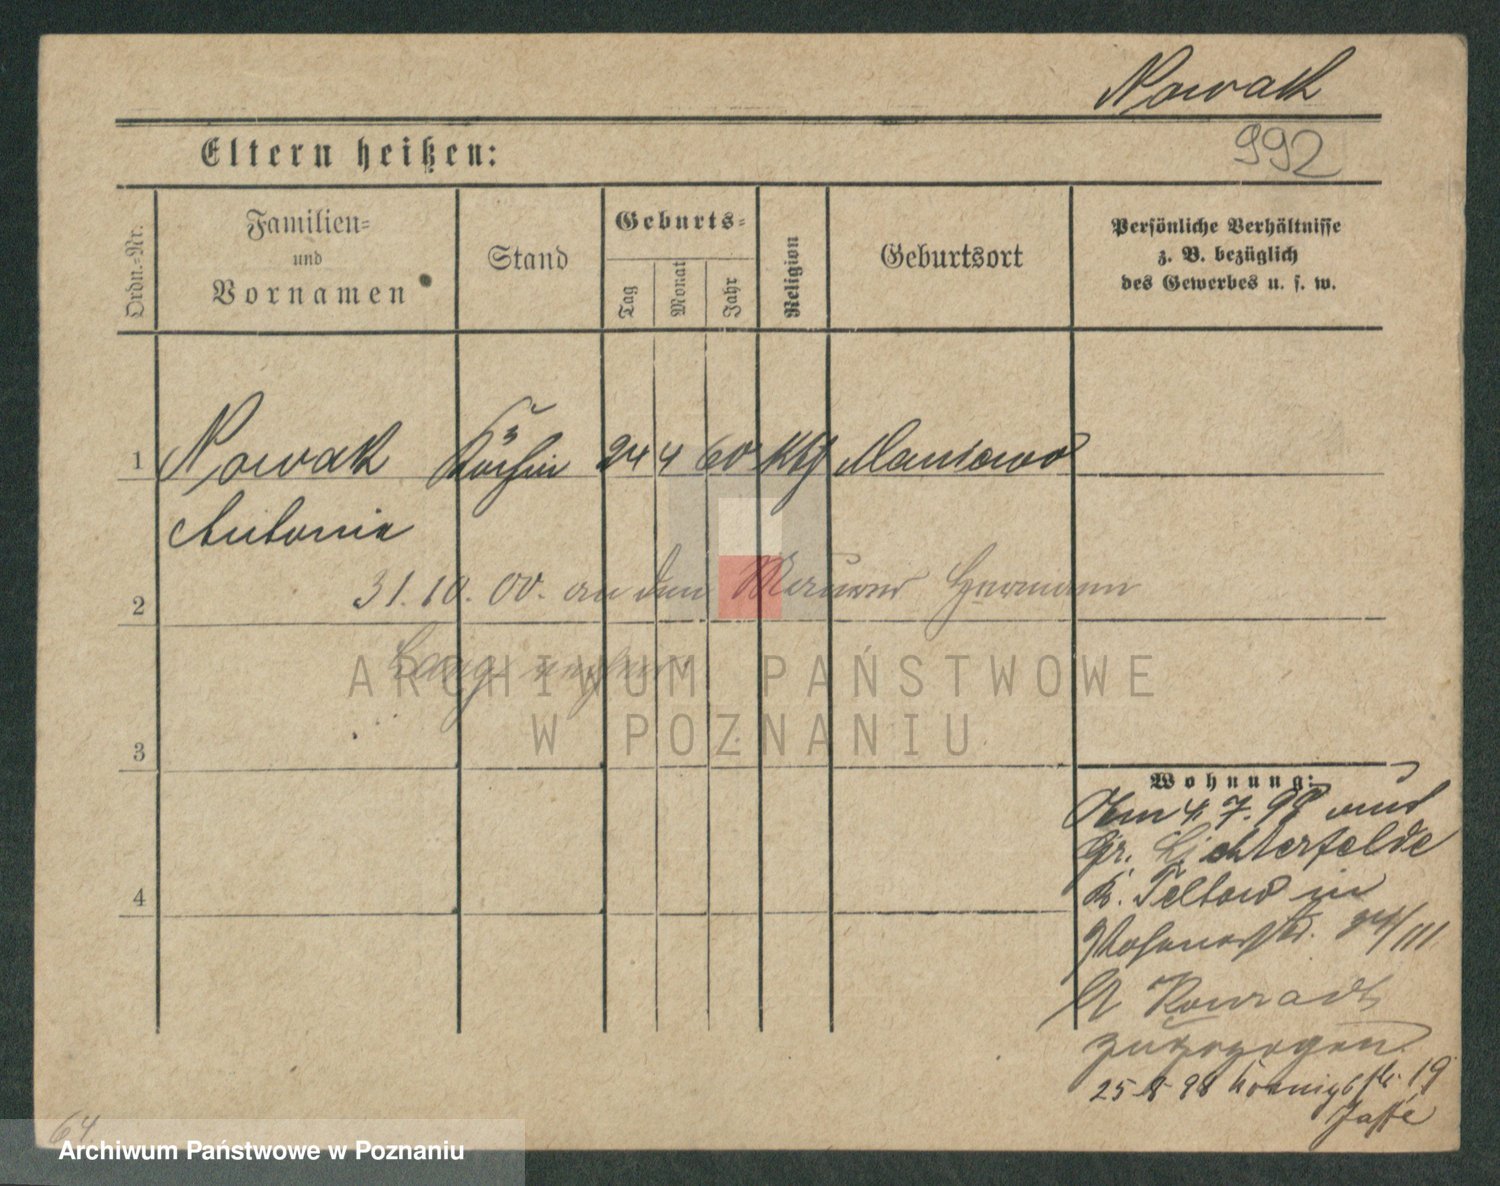 Nowak
Eltern heißen:
992
Ordn.-Nr.
Familien-
und
Vornamen
Stand
Geburts-
Tag
Monat
Jahr
Religion
Geburtsort
Persönliche Verhältnisse
z. B. bezüglich
des Gewerbes u. s. w.
1
Nowak Köchin 24 4 60 kth
Antonie
2
31.10.00. an den Maurer Hermann
Lang
ARCHIWUM PAŃSTWOWE
W POZNANIU
3
4
Wohnung:
Am 4.7.98 aus
Gr. Lichterfelde
K. Teltow in
Posenerstr. /III
Konradt
zugezogen
25.8.98 Koenigsstr. 19
Jaffé
64
Archiwum Państwowe w Poznaniu